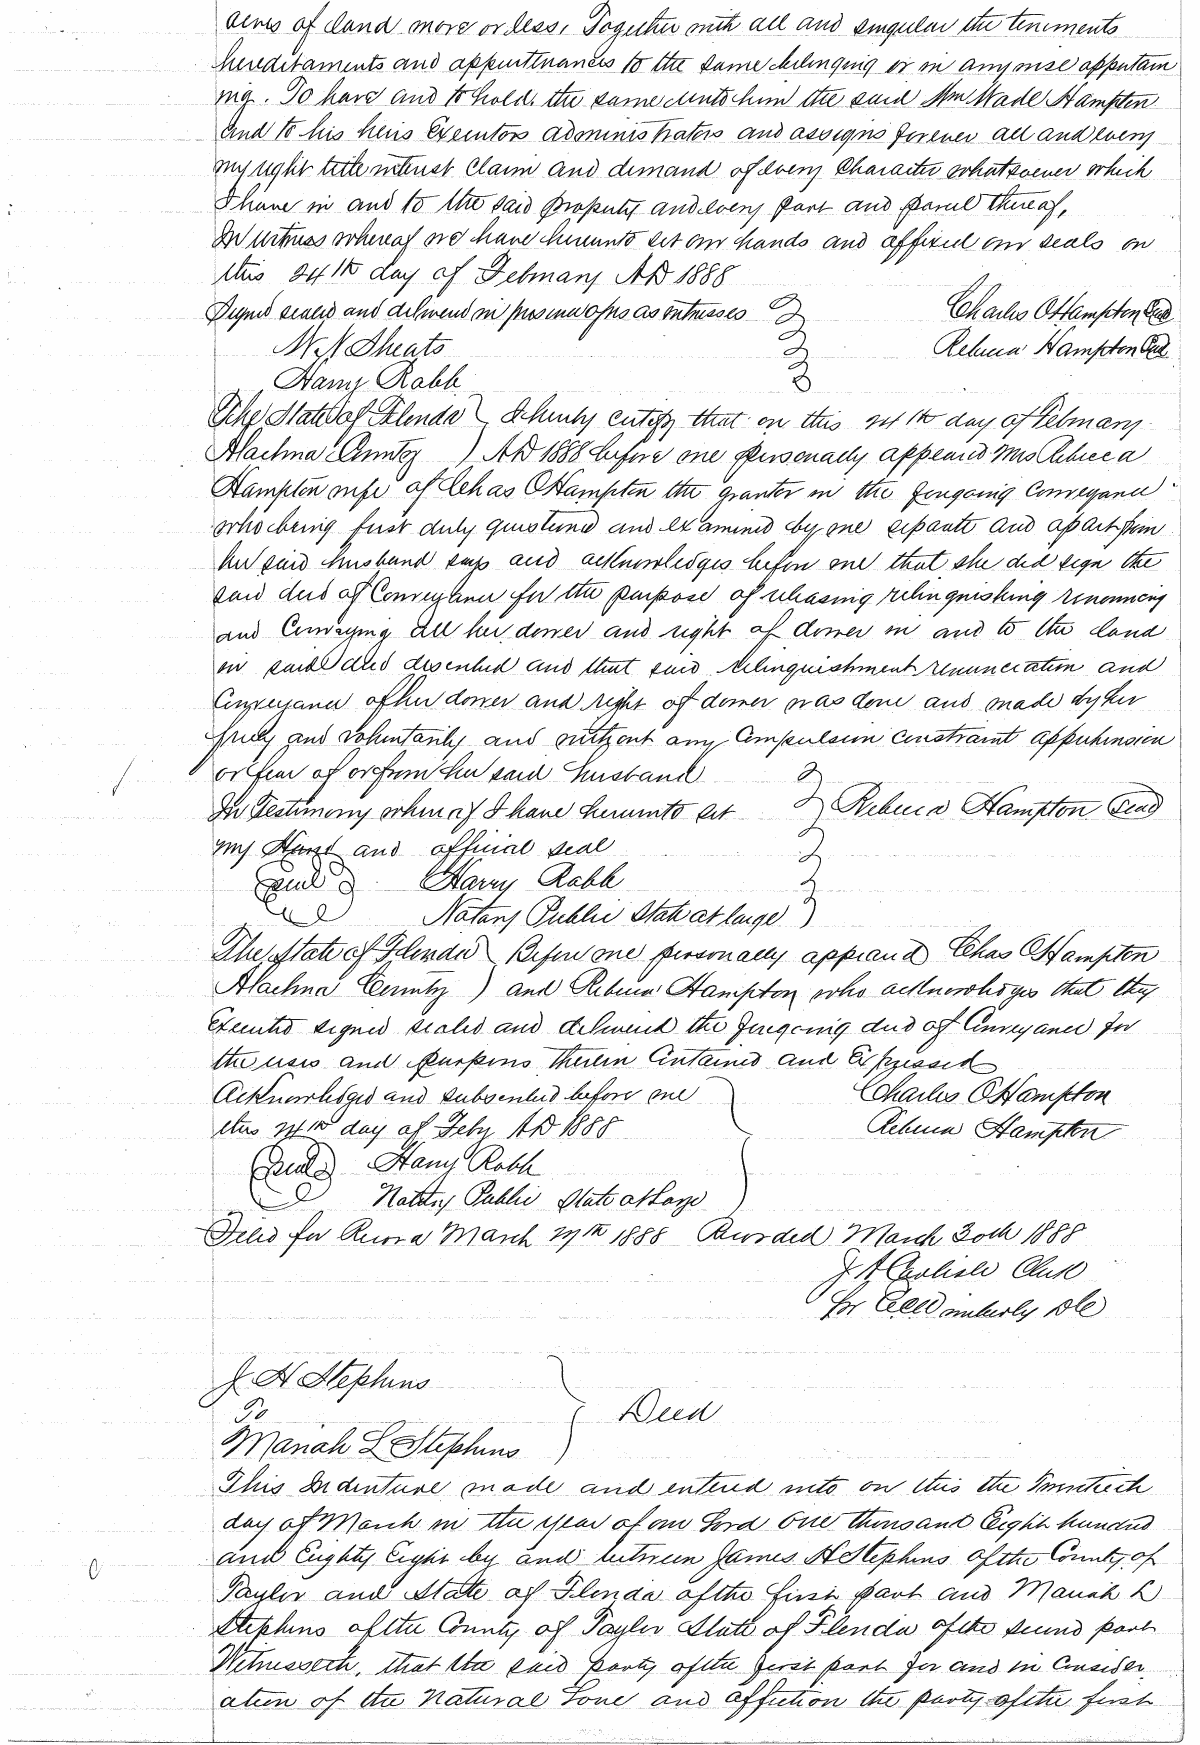 acres of land more or less, Together with all and singular the teniments
hereditaments and appurtenances to the same belonging or in anywise appertain
ing. To have and to hold the same unto him the said Wm Wade Hampton
and to his heirs Executors administrators and assigns forever all and every
my right title interest Claim and demand of every Character whatsoever which
I have in and to the said property and every part and parcel thereof,
In witness whereof we have hereunto set our hands and affixed our seals on
this 24th day of February AD 1888
Signed sealed and delivered in presence of us as witnesses Charles O Hampton Seal
N N Sheats Rebecca Hampton Seal
Harry Rabb
The State of Florida ) I hereby certify that on this 24th day of February
Alachua County ) AD 1888 before me personally appeared Mrs Rebecca
Hampton wife of Chas O Hampton the granter in the foregoing Conveyance
who being first duly questioned and examined by me separate and apart from
her said husband says and acknowledges before me that she did sign the
said deed of Conveyance for the purpose of releasing relinquishing renouncing
and Conveying all her dower and right of dower in and to the land
in said deed described and that said relinquishment renunciation and
Conveyance of her dower and right of dower was done and made by her
freely and voluntarily and without any Compulsion constraint apprehension
or fear of or from her said husband
In Testimony whereof I have hereunto set Rebecca Hampton Seal
my Hand and official seal
Seal Harry Rabb
Notary Public State at large )
The State of Florida ) Before me personally appeared Chas O Hampton
Alachua County ) and Rebecca Hampton who acknowledges that they
Executed signed sealed and delivered the foregoing deed of Conveyance for
the uses and purposes therein Contained and Expressed
Acknowledged and subscribed before me Charles O Hampton
this 24th day of Feby AD 1888 Rebecca Hampton
Seal Harry Rabb
Notary Public State at Large
Filed for Record March 29th 1888 Recorded March 30th 1888
J A Carlisle Clerk
for Wimberly DC
J. H Stephens
To Deed
Mariah L Stephens
This Indenture made and entered into on this the Twentieth
day of March in the year of our Lord One thousand Eight hundred
and Eighty Eight by and between James H Stephens of the County of
Taylor and State of Florida of the first part and Mariah L
Stephens of the County of Taylor State of Florida of the second part
Witnesseth, that the said party of the first part for and in Consider
ation of the Natural Love and affection the party of the first